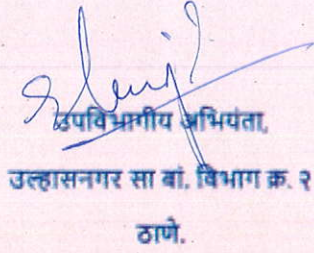 उपविभागीय अभियंता,
उल्हासनगर सा बां. विभाग क्र. २
ठाणे.